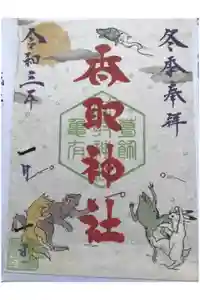 冬季奉拝
香取神社
葛飾
亀有
令和三年
一月一日